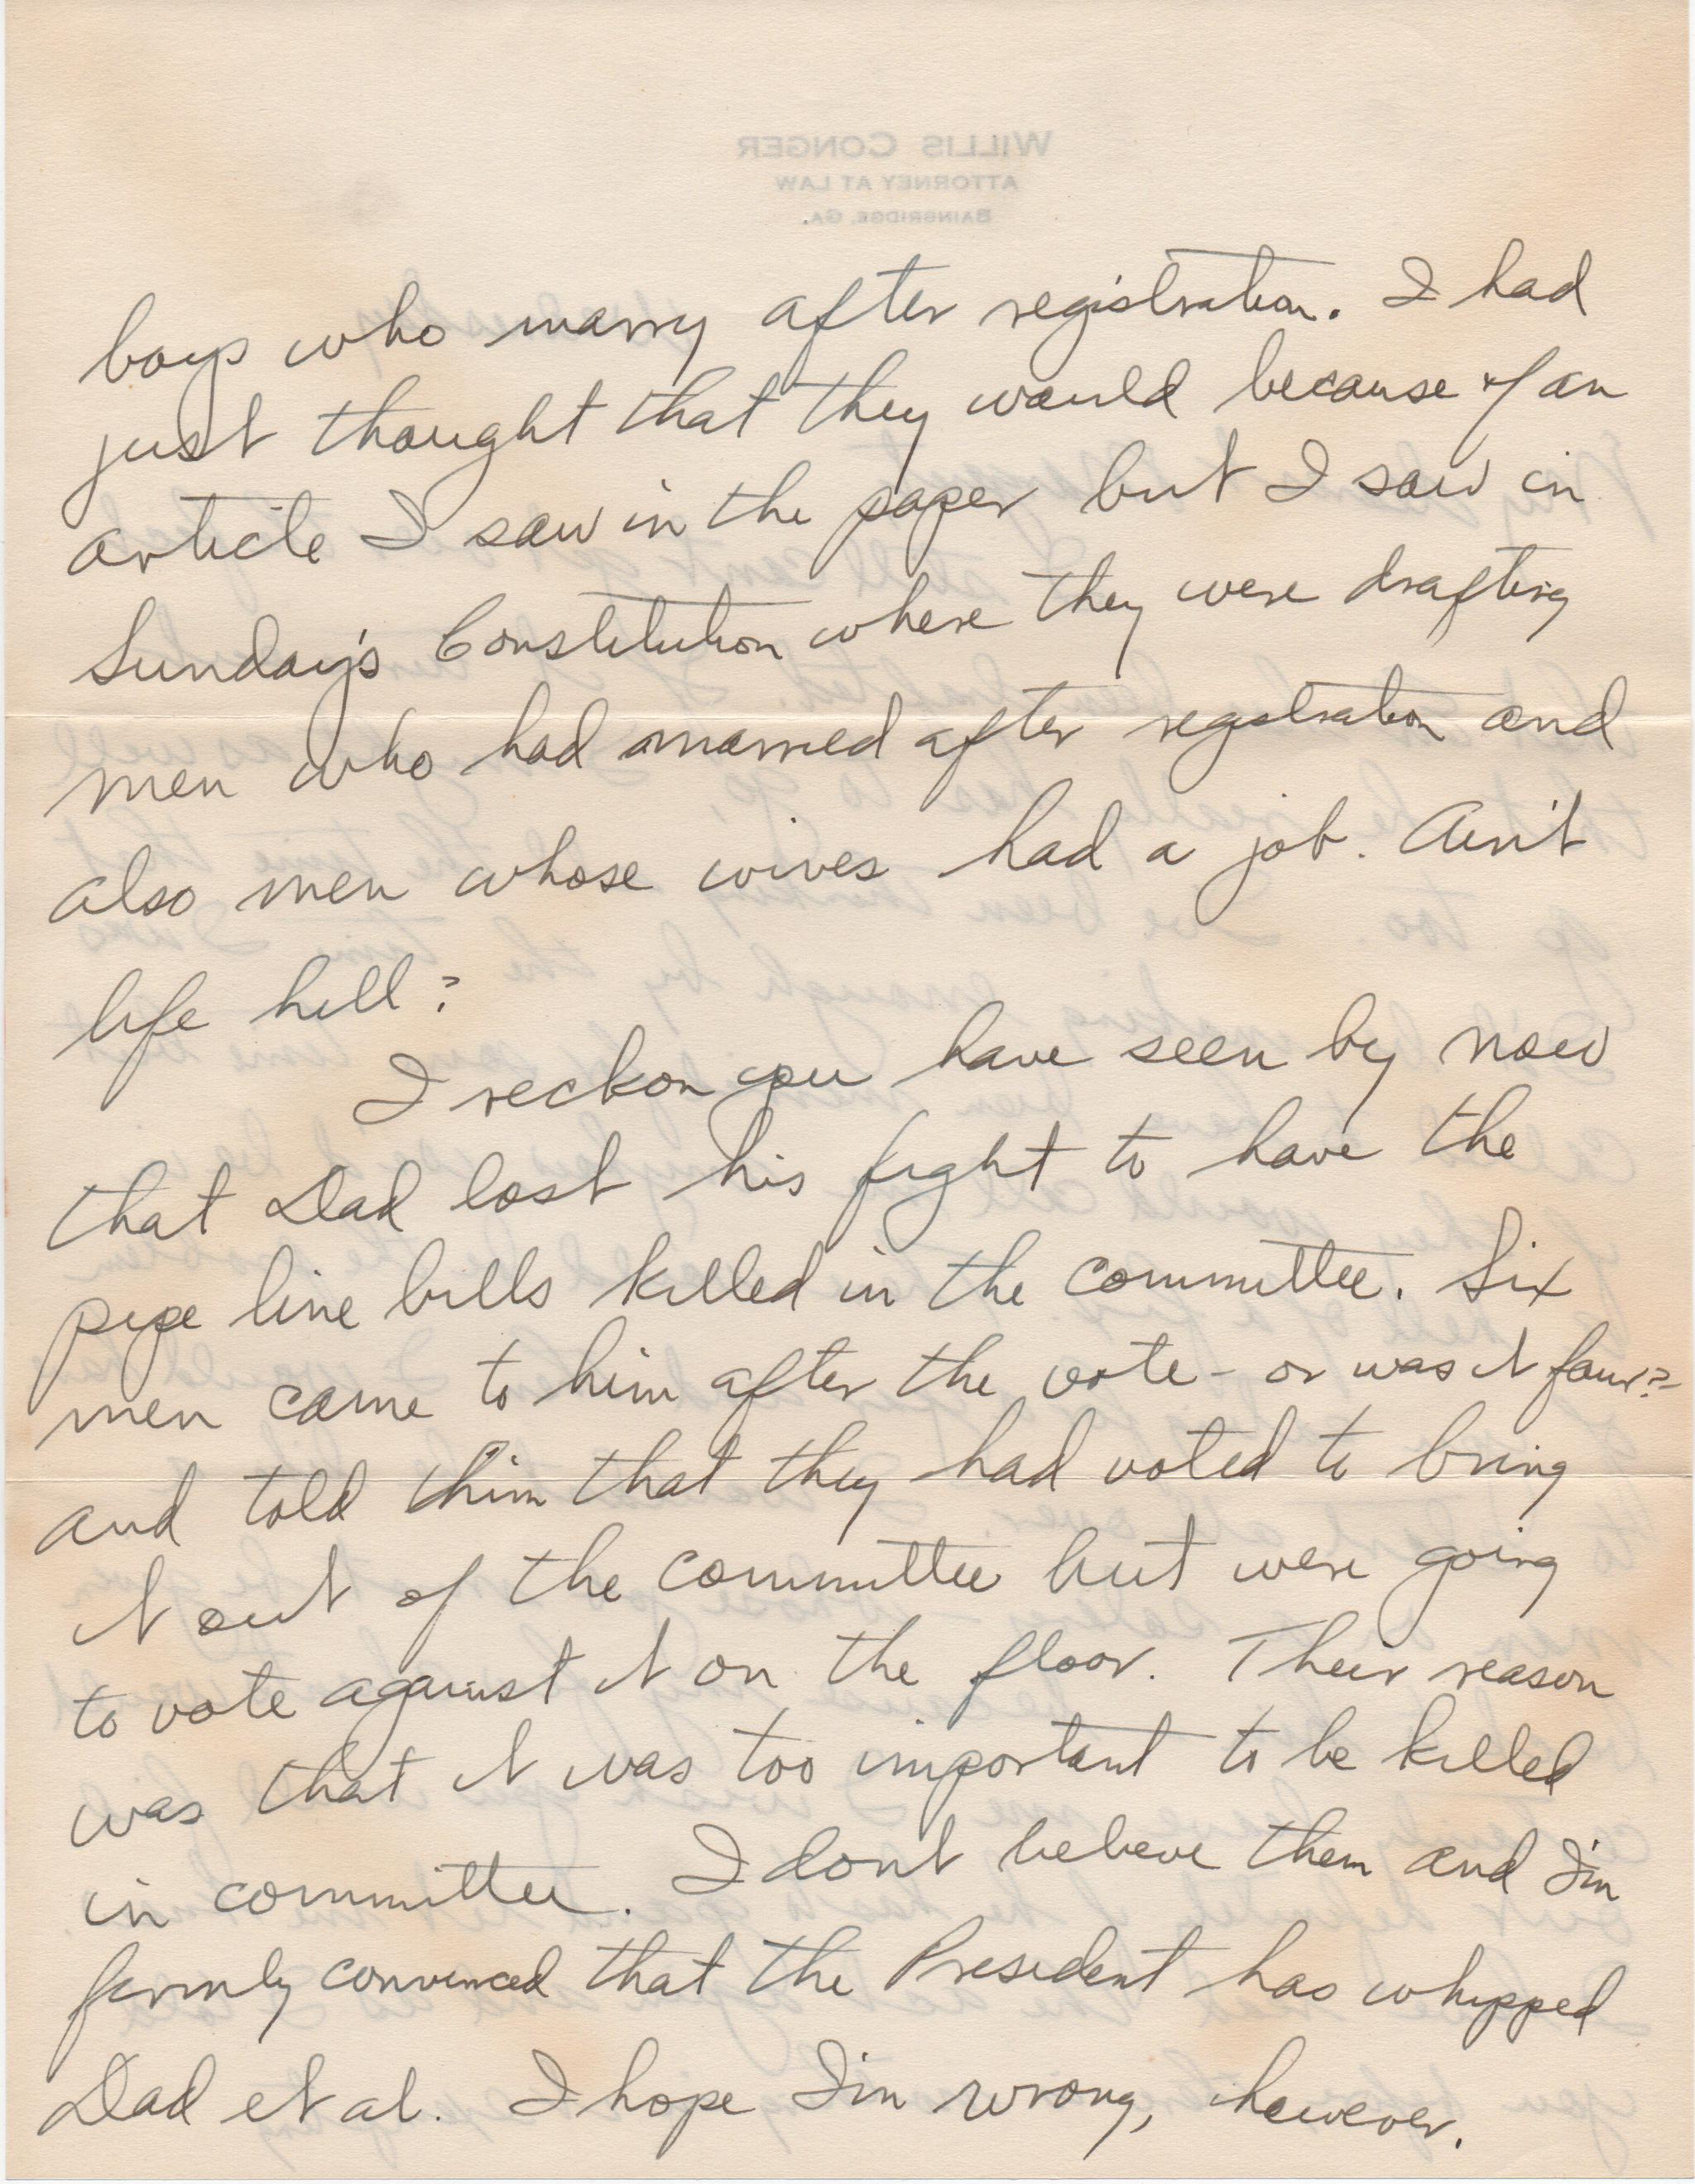 WILLIS CONGER
ATTORNEY AT LAW
BAINBRIDGE, GA.
boys who marry after registration. I had
just thought that they would because of an
article I saw in the paper but I saw in
Sunday's Constitution where they were drafting
men who had married after registration and
also men whose wives had a job. Ain't
life hell?
I reckon you have seen by now
that Dad lost his fight to have the
pipe line bills killed in the committee. Six
men came to him after the vote - or was it four? -
and told him that they had voted to bring
it out of the committee but were going
to vote against it on the floor. Their reason
was that it was too important to be killed
in committee. I don't believe them and I'm
firmly convinced that the President has whipped
Dad et al. I hope I'm wrong, however.